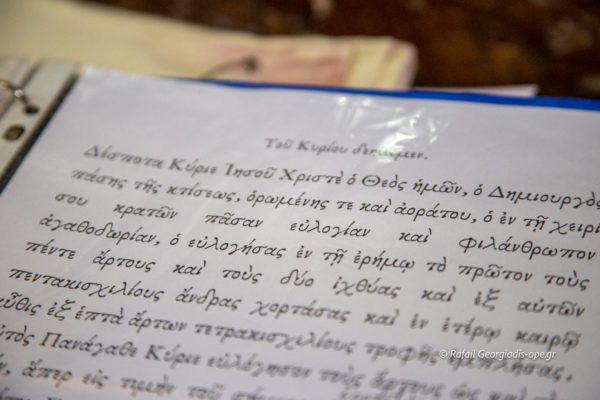 Τοῦ Κυρίου δεηθῶμεν.
Δέσποτα Κύριε Ἰησοῦ Χριστὲ ὁ Θεὸς ἡμῶν, ὁ Δημιουργὸς
πάσης τῆς κτίσεως, ὁρωμένης τε καὶ ἀοράτου, ὁ ἐν τῇ χειρί
σου κρατῶν πᾶσαν εὐλογίαν καὶ φιλάνθρωπον
ἀγαθοδωρίαν, ὁ εὐλογήσας ἐν τῇ ἐρήμῳ τὸ πρῶτον τοὺς
πέντε ἄρτους καὶ τοὺς δύο ἰχθύας καὶ ἐξ αὐτῶν
πεντακισχιλίους ἄνδρας χορτάσας καὶ ἐν ἑτέρῳ καιρῷ
αὖθις ἐξ ἑπτὰ ἄρτων τετρακισχιλίους τροφῆς ἐμπλήσας,
αὐτὸς Πανάγαθε Κύριε εὐλόγησον τοὺς ἄρτους
ἅπερ εἰς τιμὴν τοῦ
© Rafail Georgiadis-ope.gr